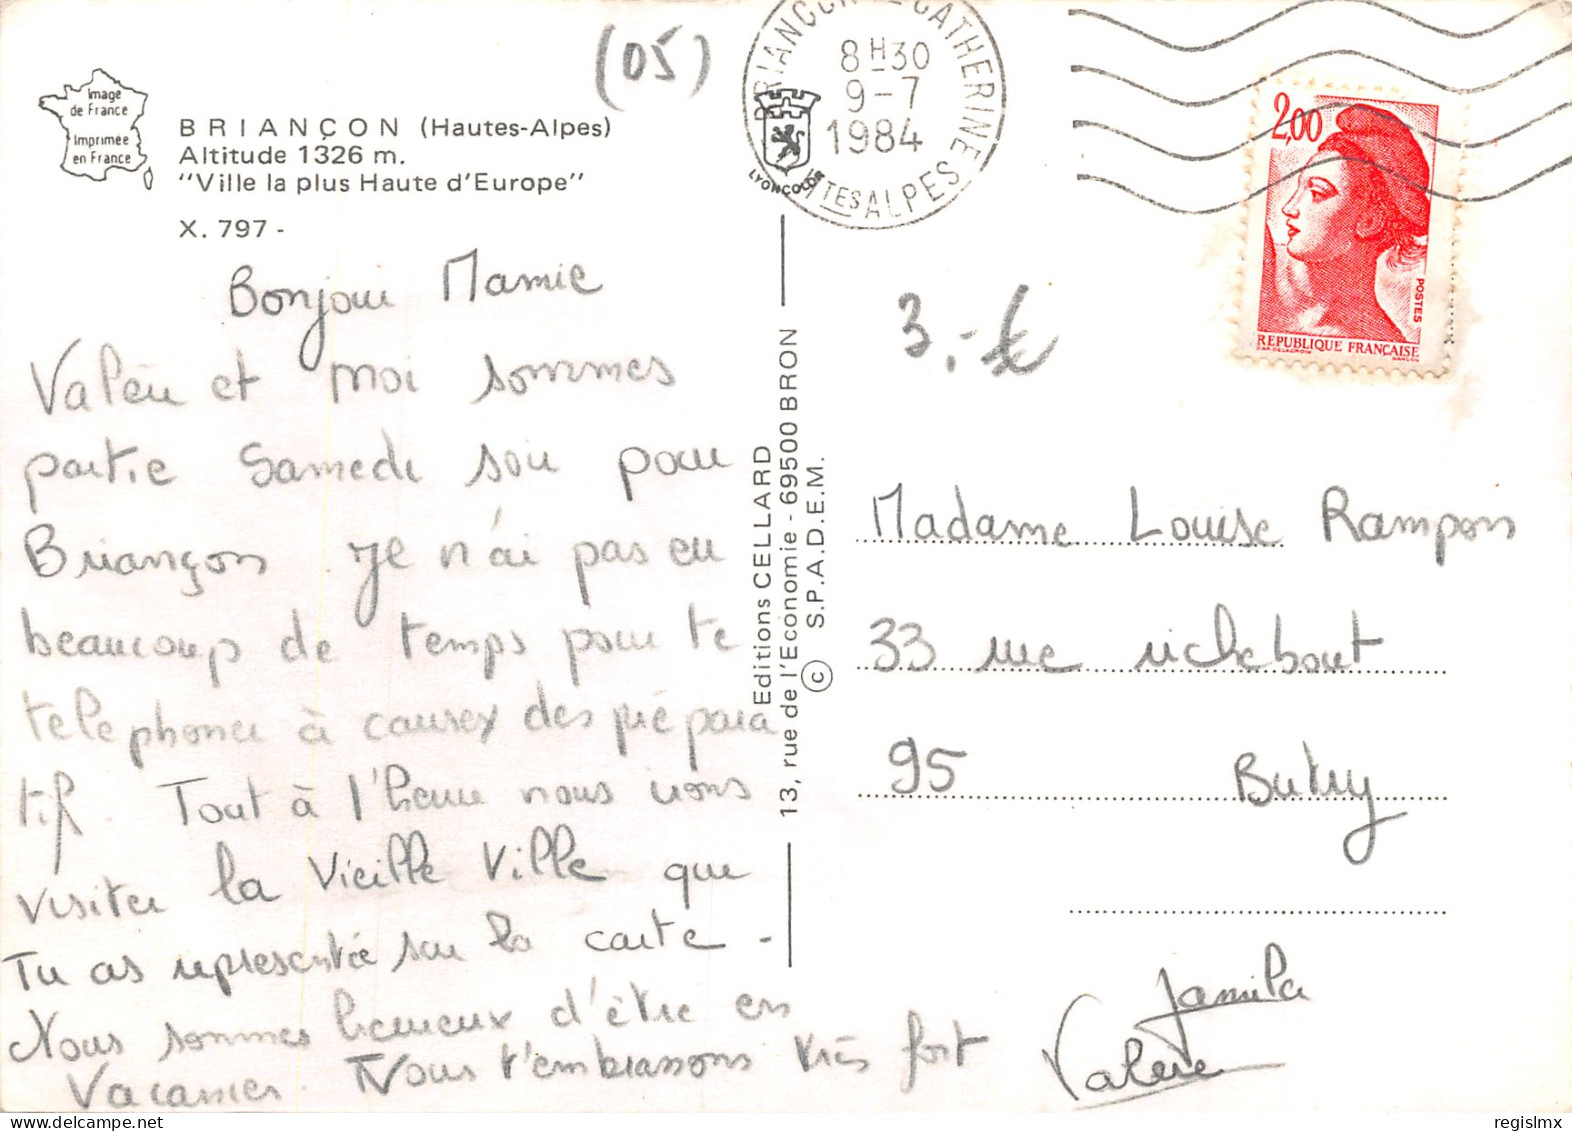 (05)
Image
de France
Imprimée
en France
BRIANÇON (Hautes-Alpes)
Altitude 1326 m.
"Ville la plus Haute d'Europe"
X. 797 -
Bonjour Mamie
Valérie et moi sommes
partie Samedi soir pour
Briançon. Je n'ai pas eu
beaucoup de temps pour te
telephoner à causes des prépara
tif. Tout à l'heure nous irons
visiter la Vieille Ville que
Tu as représentée sur la carte -
Nous sommes heureux d'être en
Vacances. Nous t'embrassons très fort
Jamila
Valérie
Editions CELLARD
13, rue de l'Economie - 69500 BRON
© S.P.A.D.E.M.
BRIANÇON CATHERINE
8H30
9-7
1984
HTES ALPES
LYONCOLOR
2,00
POSTES
REPUBLIQUE FRANÇAISE
DAP. DELACROIX GANDON
3.-€
Madame Louise Rampon
33 rue richebout
95 Butry
regislmx